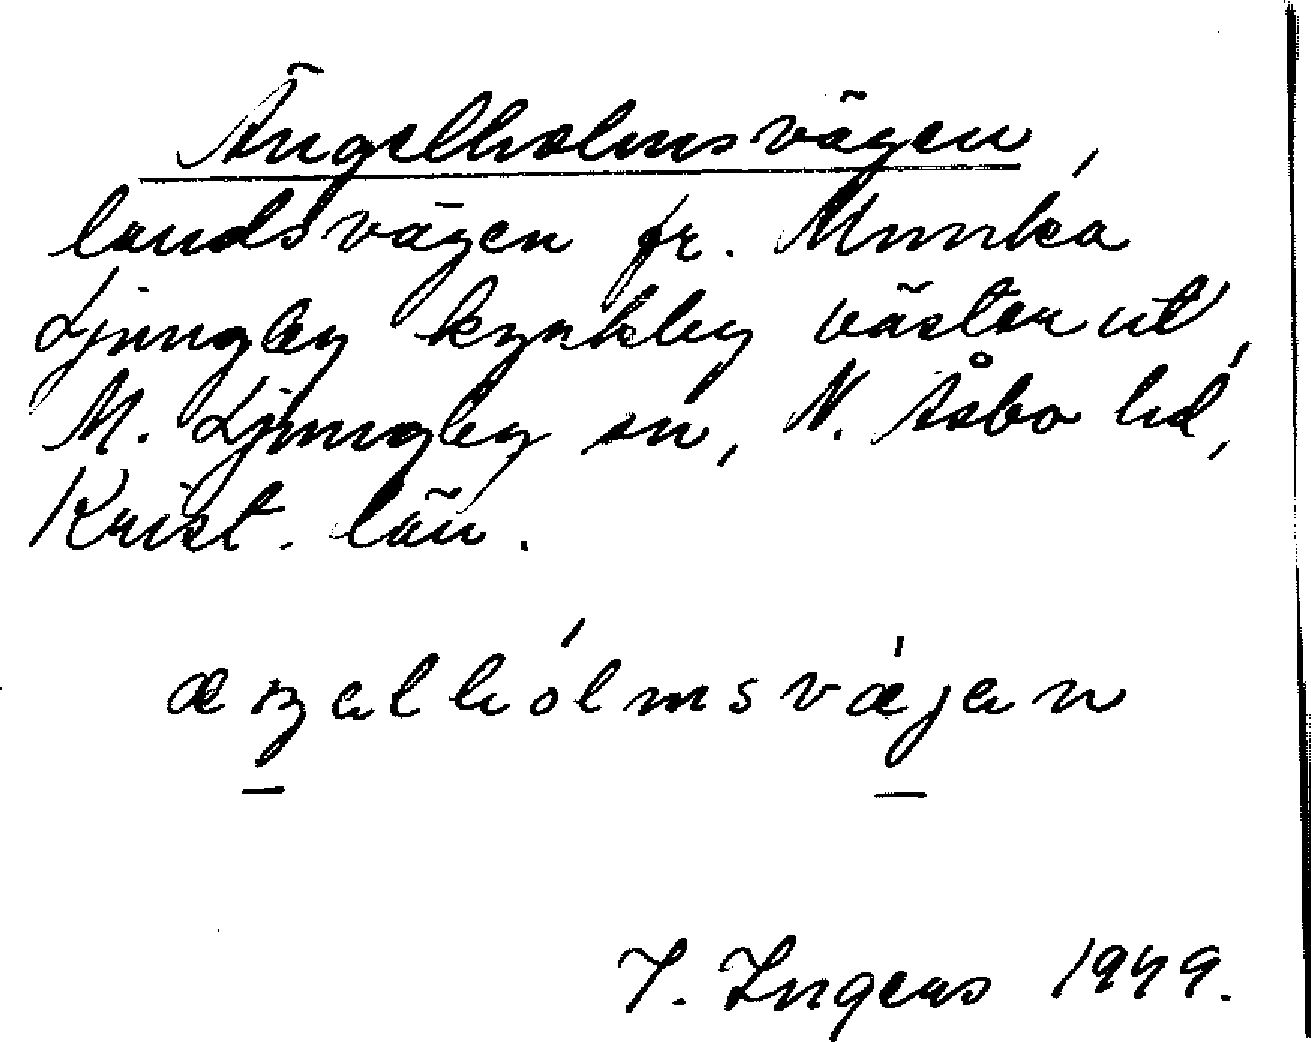 Ängelholmsvägen,
landsvägen fr. Munka
Ljungby kyrkby västerut,
M. Ljungby sn, N. Åsbo hd,
Krist. län.
æŋəlhólmsvǽjən
I. Ingers 1949.